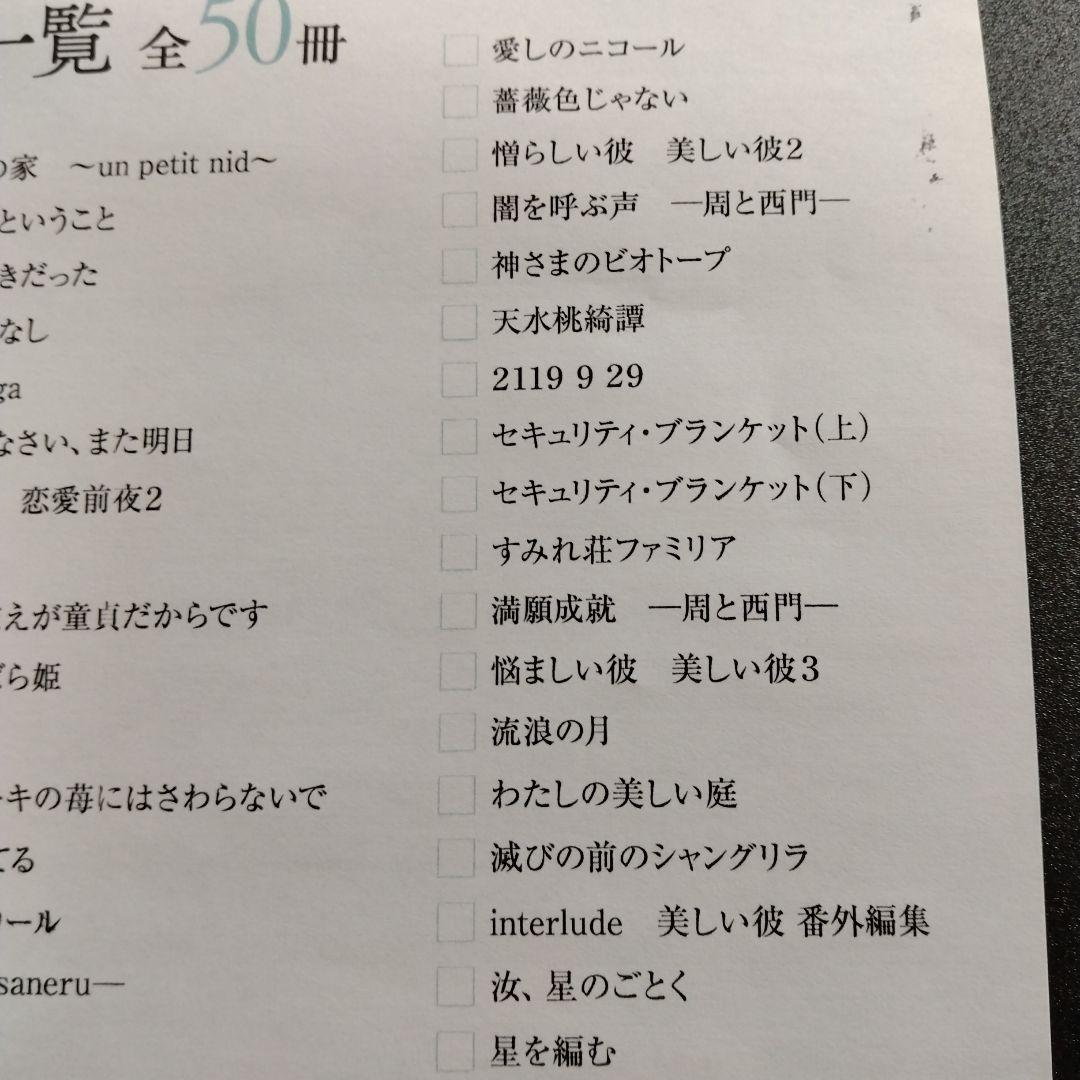 一覧 全50冊
の家 〜un petit nid〜
ということ
きだった
なし
ga
なさい、また明日
恋愛前夜2
えが童貞だからです
ばら姫
ーキの苺にはさわらないで
てる
コール
saneru―
愛しのニコール
薔薇色じゃない
憎らしい彼 美しい彼2
闇を呼ぶ声 ―周と西門―
神さまのビオトープ
天水桃綺譚
2119 9 29
セキュリティ・ブランケット(上)
セキュリティ・ブランケット(下)
すみれ荘ファミリア
満願成就 ―周と西門―
悩ましい彼 美しい彼3
流浪の月
わたしの美しい庭
滅びの前のシャングリラ
interlude 美しい彼 番外編集
汝、星のごとく
星を編む